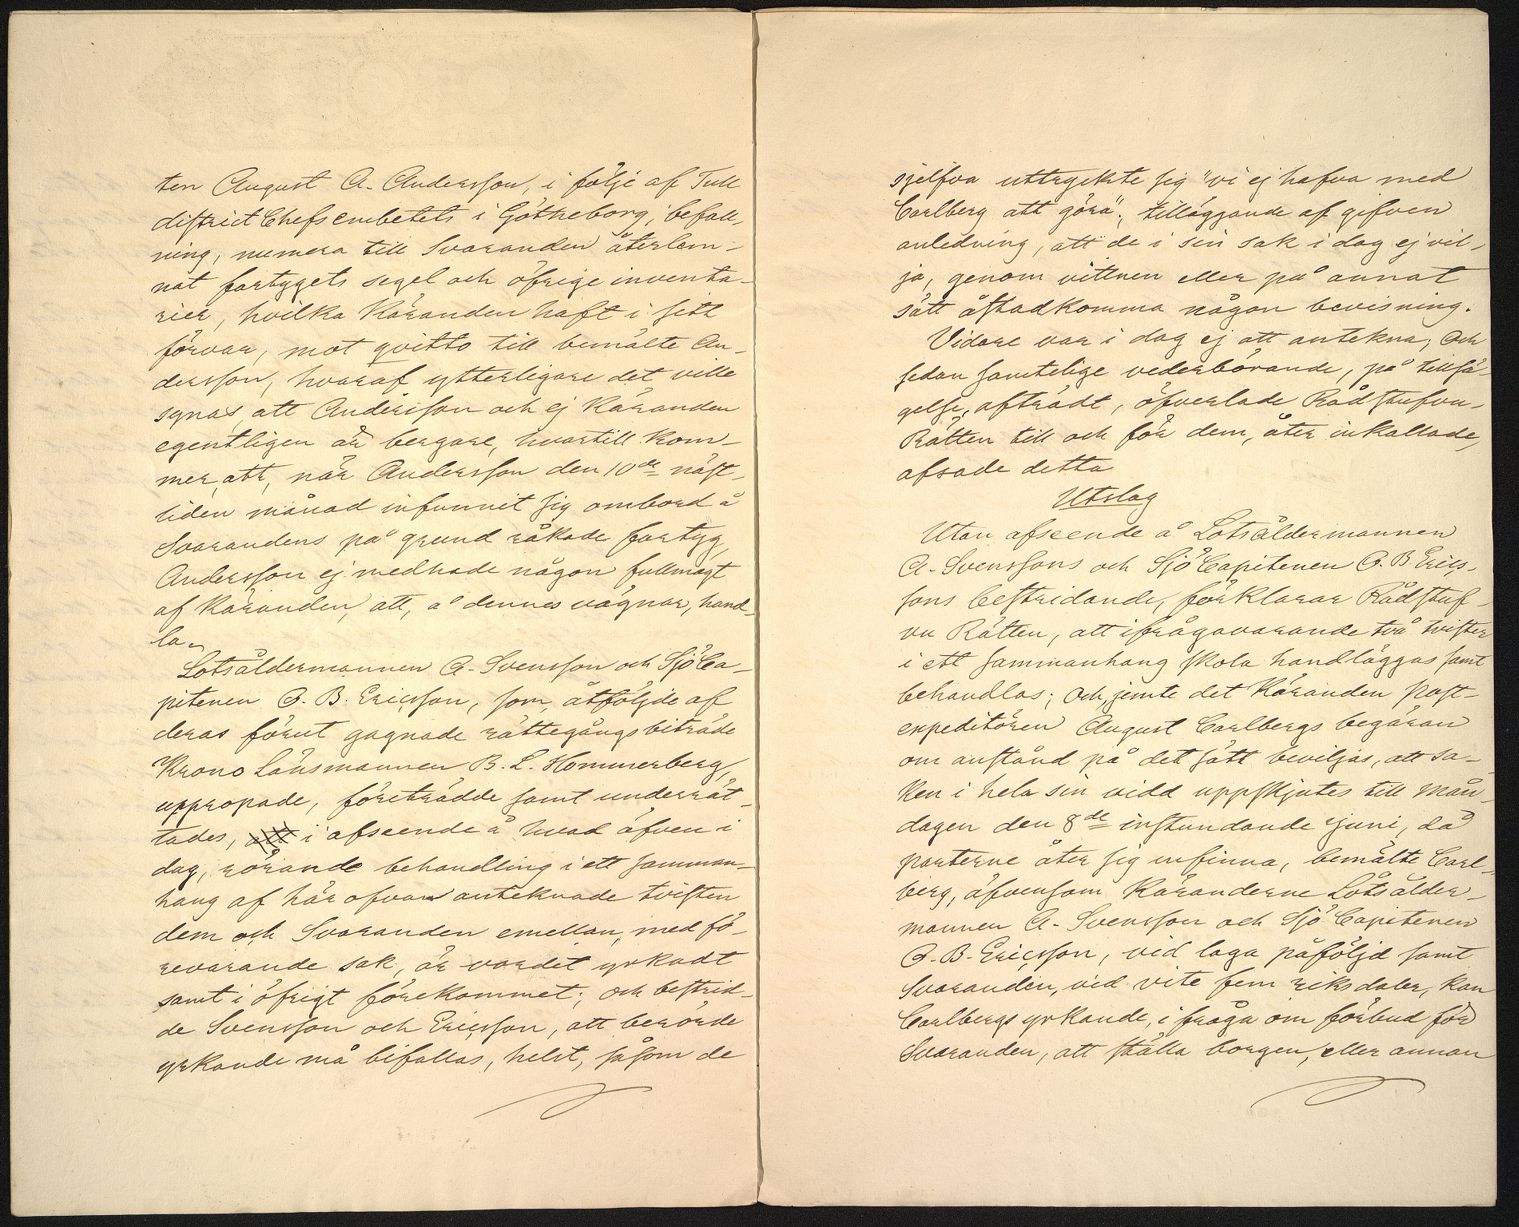 ten August A. Andersson, i följe af Tull
district Chefs embetets i Götheborg, befall
ning, numera till Svaranden återlem-
nat fartygets segel och öfrige inventa-
rier, hvilka Käranden haft i sitt
förvar, mot qvitto till bemälte An-
dersson, hvaraf ytterligare det ville
synas att Andersson och ej Käranden
egentligen är bergare, hvartill kom-
mer, att, när Andersson den 10de näst-
liden månad infunnit sig ombord å
Svarandens på grund råkade fartyg,
Andersson ej medhade någon fullmagt
af Käranden, att, å dennes vägnar, hand-
la.
Lotsåldermannen A. Svensson och Sjö Ca-
pitenen O. B. Ericsson, som, åtföljde af
deras förut gagnade rättegångsbiträde
Krono Länsmannen B. L. Hommerberg,
uppropade, företrädde samt underrät-
tades, i afseende å hvad äfven i
dag, rörande behandling i ett samman-
hang af här ofvan antecknade tvisten
dem och Svaranden emellan, med fö-
revarande sak, är vordet yrkadt
samt i öfrigt förekommet; och bestrid-
de Svensson och Ericsson, att berörde
yrkande må bifallas, helst, såsom de
sjelfva uttryckte sig "vi ej hafva med
Carlberg att göra", tilläggande af gifven
anledning, att de i sin sak i dag ej vil-
ja, genom vittnen eller på annat
sätt åstadkomma någon bevisning.
Vidare var i dag ej att antekna, och
sedan samtelige vederbörande, på tillsä-
gelse, afträdt, öfverlade Rådstufvu-
Rätten till och för dem, åter inkallade,
afsade detta
Utslag
Utan afseende å Lotsåldermannen
A. Svenssons och Sjö Capitenen O. B. Erics-
sons bestridande, förklarar Rådstuf-
vu Rätten, att ifrågavarande två tvister
i ett sammanhang skola handläggas samt
behandlas; och, jemte det Käranden post-
expeditören August Carlbergs begäran
om anstånd på det sätt beviljas, att sa-
ken i hela sin vidd uppskjutes till Mån-
dagen den 8de instundande Juni, då
parterne åter sig infinna, bemälte Carl-
berg, äfvensom Käranderne Lotsålder-
mannen A. Svensson och Sjö Capitenen
O. B. Ericsson, vid laga påföljd samt
Svaranden, vid vite fem riksdaler, kan
Carlbergs yrkande, i fråga om förbud för
Svaranden, att ställa borgen, eller annan